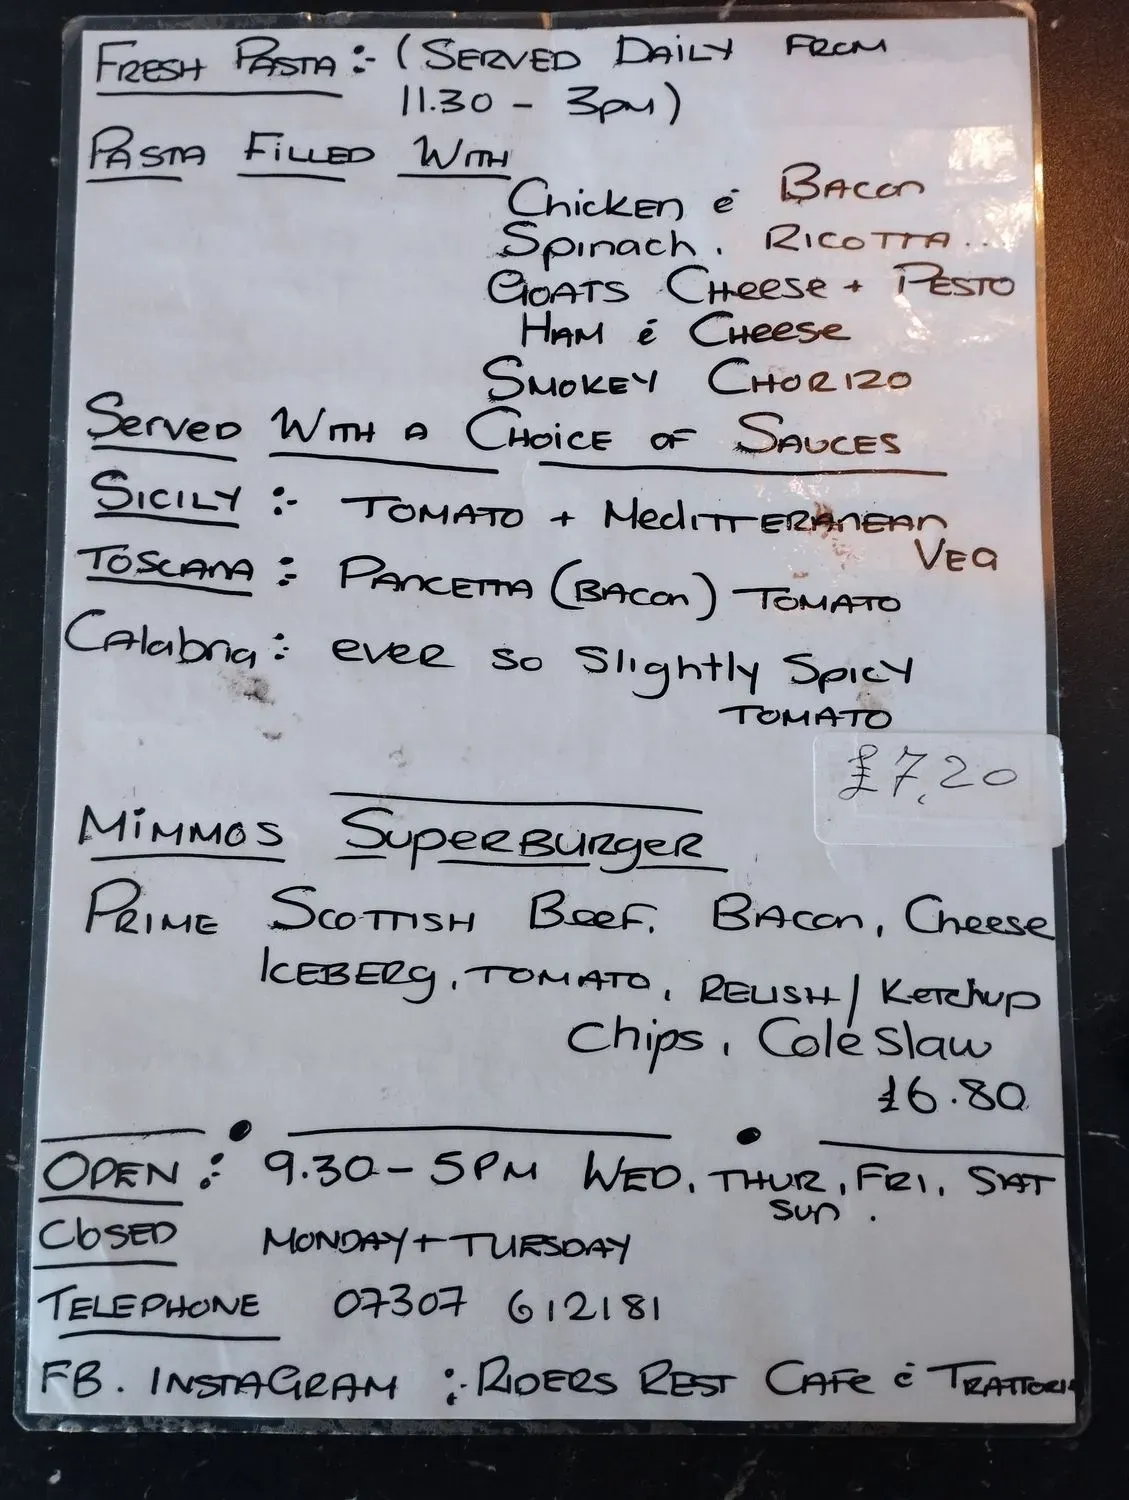 FRESH PASTA :- (SERVED DAILY FROM
11.30 - 3pm)
PASTA FILLED WITH
Chicken & BACON
Spinach, RICOTTA..
GOATS CHeese + PESTO
HAM & CHeese
SMOKEY CHORIZO
Served WITH A CHOICE OF SAUCES
SICILY :- TOMATO + MediTTERANEAN
VEG
TOSCANA :- PANCETTA (BACON) TOMATO
CAlabria :- ever so Slightly SPICY
TOMATO
£7,20
MIMMOS SUPERBURgER
PRIME SCOTTISH BeeF. BACON, Cheese
ICEBERg, TOMATO, RELISH/ Ketchup
chips, Cole slaw
£6.80
OPEN :- 9.30 - 5PM WED, THUR, FRI, SAT
SUN.
ClOSED MONDAY + TUESDAY
TELEPHONE 07307 612181
FB. INSTAGRAM :- RIDERS REST CAFe & TRATTORIA